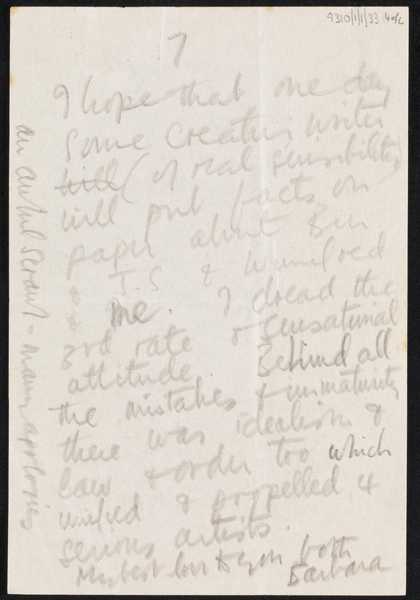 9310/1/1/33 4of6
7
I hope that one day
some creative writer
will (of real sensibility)
will put facts on
paper about Ben
& Winifred
me. I dread the
3rd rate & sensational
attitude. Behind all
the mistakes & immaturity
there was idealism &
law & order too which
unified & propelled 4
serious artists.
My best love to you both
Barbara
an awful scrawl - many apologies